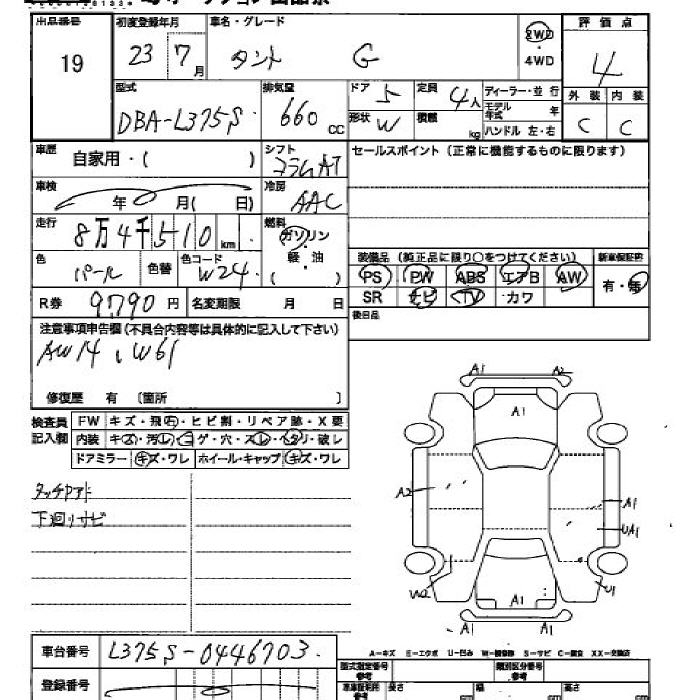 出品番号 初度登録年月 車名・グレード 評価点
19 23 7月 タント G 2WD・4WD 4
型式 排気量 ドア 5 定員 4人 ディーラー・並行 外装 内装
DBA-L375S 660cc 形状 W 積載 kg モデル年式 年 C C
ハンドル 左・右
車歴 自家用・( ) シフト コラムAT セールスポイント(正常に機能するものに限ります)
車検 年 月( 日) 冷房 AAC
走行 8万4千510km 燃料 ガソリン・軽・油( )
色 パール 色替 色コード W24 装備品(純正品に限り○をつけてください) 新車保証書
PS PW ABS エアB AW 有・無
R券 9790円 名変期限 月 日 SR ナビ TV カワ
注意事項申告欄(不具合内容等は具体的に記入して下さい) 後日品
AW14、W61
修復歴 有 〔箇所 〕
検査員記入欄 FW キズ・飛石・ヒビ割・リペア跡・X要
内装 キズ・汚レ・コゲ・穴・スレ・ヘタリ・破レ
ドアミラー キズ・ワレ ホイール・キャップ キズ・ワレ
タッチアト
下廻りサビ
A1 A2
A1
A2 A1
UA1
W2 U1
A1
A1
A-キズ E-エクボ U-凹み W-補修跡 S-サビ C-腐食 XX-交換済
車台番号 L375S-0446703
型式指定番号 参考 類別区分番号 参考
登録番号 長さ cm 幅 cm 高さ cm